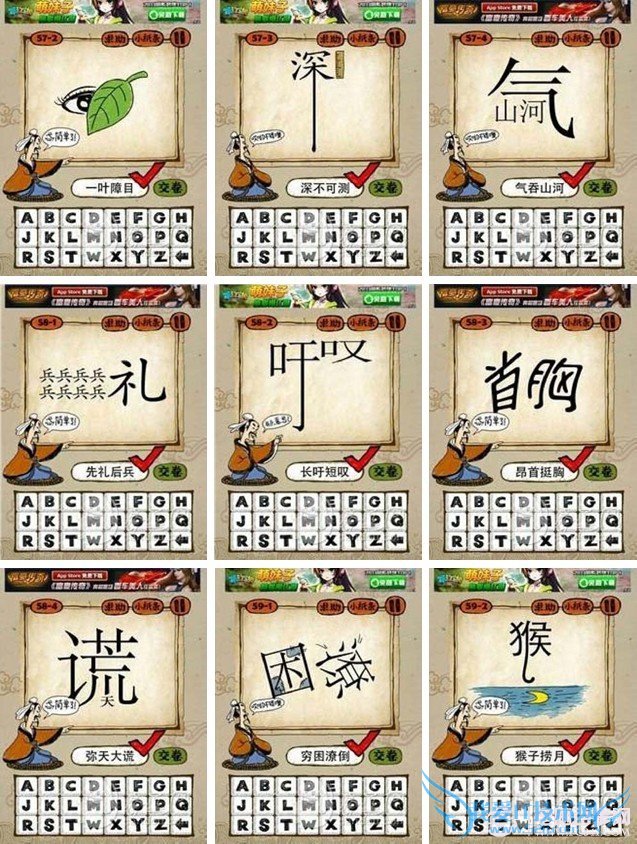 萌妹子
57-2 求助 小纸条
简单了!
一叶障目 交卷
A B C D E F G H
J K L M N O P Q
R S T W X Y Z
萌妹子
免费下载
57-3 求助 小纸条
深
深不可测 交卷
A B C D E F G H
J K L M N O P Q
R S T W X Y Z
App Store 免费下载
57-4 求助 小纸条
气
山河
气吞山河 交卷
A B C D E F G H
J K L M N O P Q
R S T W X Y Z
App Store 免费下载
58-1 求助 小纸条
兵兵兵兵
兵兵兵兵
礼
简单了!
先礼后兵 交卷
A B C D E F G H
J K L M N O P Q
R S T W X Y Z
萌妹子
免费下载
58-2 求助 小纸条
吁叹
长吁短叹 交卷
A B C D E F G H
J K L M N O P Q
R S T W X Y Z
App Store 免费下载
58-3 求助 小纸条
首胸
简单了!
昂首挺胸 交卷
A B C D E F G H
J K L M N O P Q
R S T W X Y Z
App Store 免费下载
58-4 求助 小纸条
谎
天
简单了!
弥天大谎 交卷
A B C D E F G H
J K L M N O P Q
R S T W X Y Z
萌妹子
免费下载
59-1 求助 小纸条
困潦
穷困潦倒 交卷
A B C D E F G H
J K L M N O P Q
R S T W X Y Z
App Store 免费下载
59-2 求助 小纸条
猴
简单了!
猴子捞月 交卷
A B C D E F G H
J K L M N O P Q
R S T W X Y Z